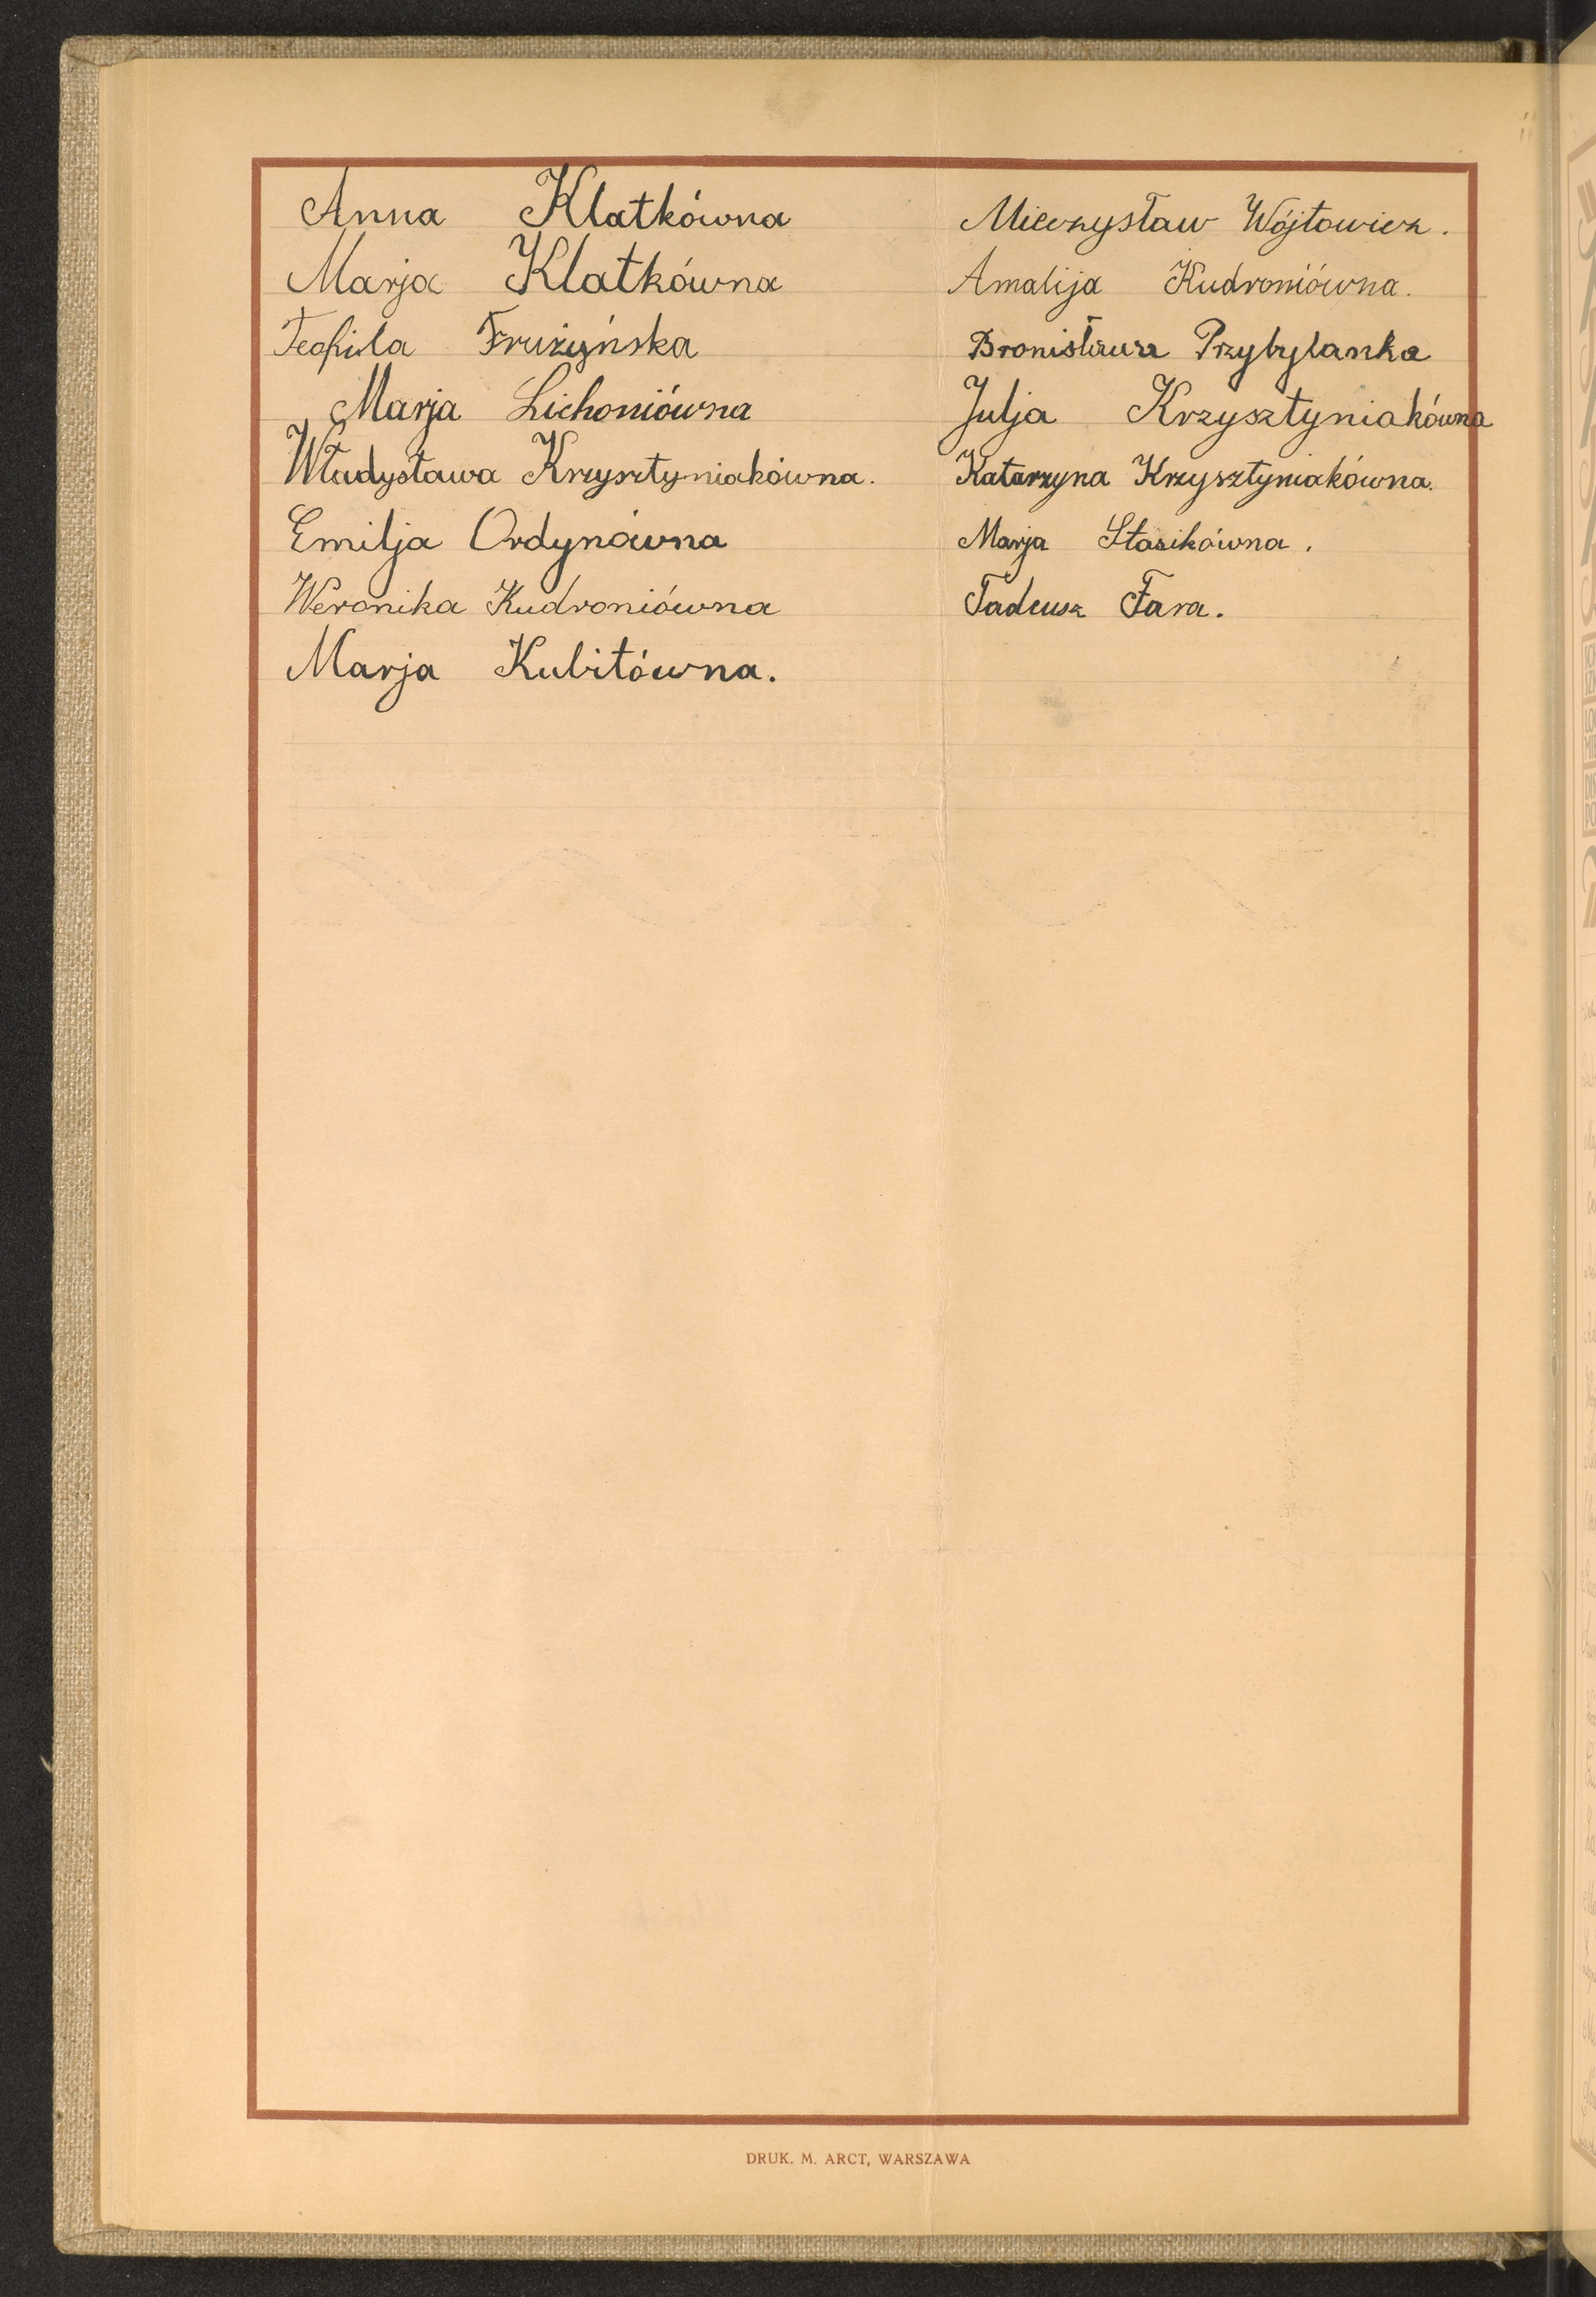 Anna Klatkówna
Marja Klatkówna
Teofila Frużyńska
Marja Lichoniówna
Władysława Krzysztyniakówna.
Emilja Ordynówna
Weronika Kudroniówna
Marja Kubitówna.
Mieczysław Wójtowicz.
Amalija Kudroniówna.
Bronisława Przybylanka
Julja Krzysztyniakówna
Katarzyna Krzysztyniakówna.
Marja Stasikówna.
Tadeusz Fara.
DRUK. M. ARCT, WARSZAWA